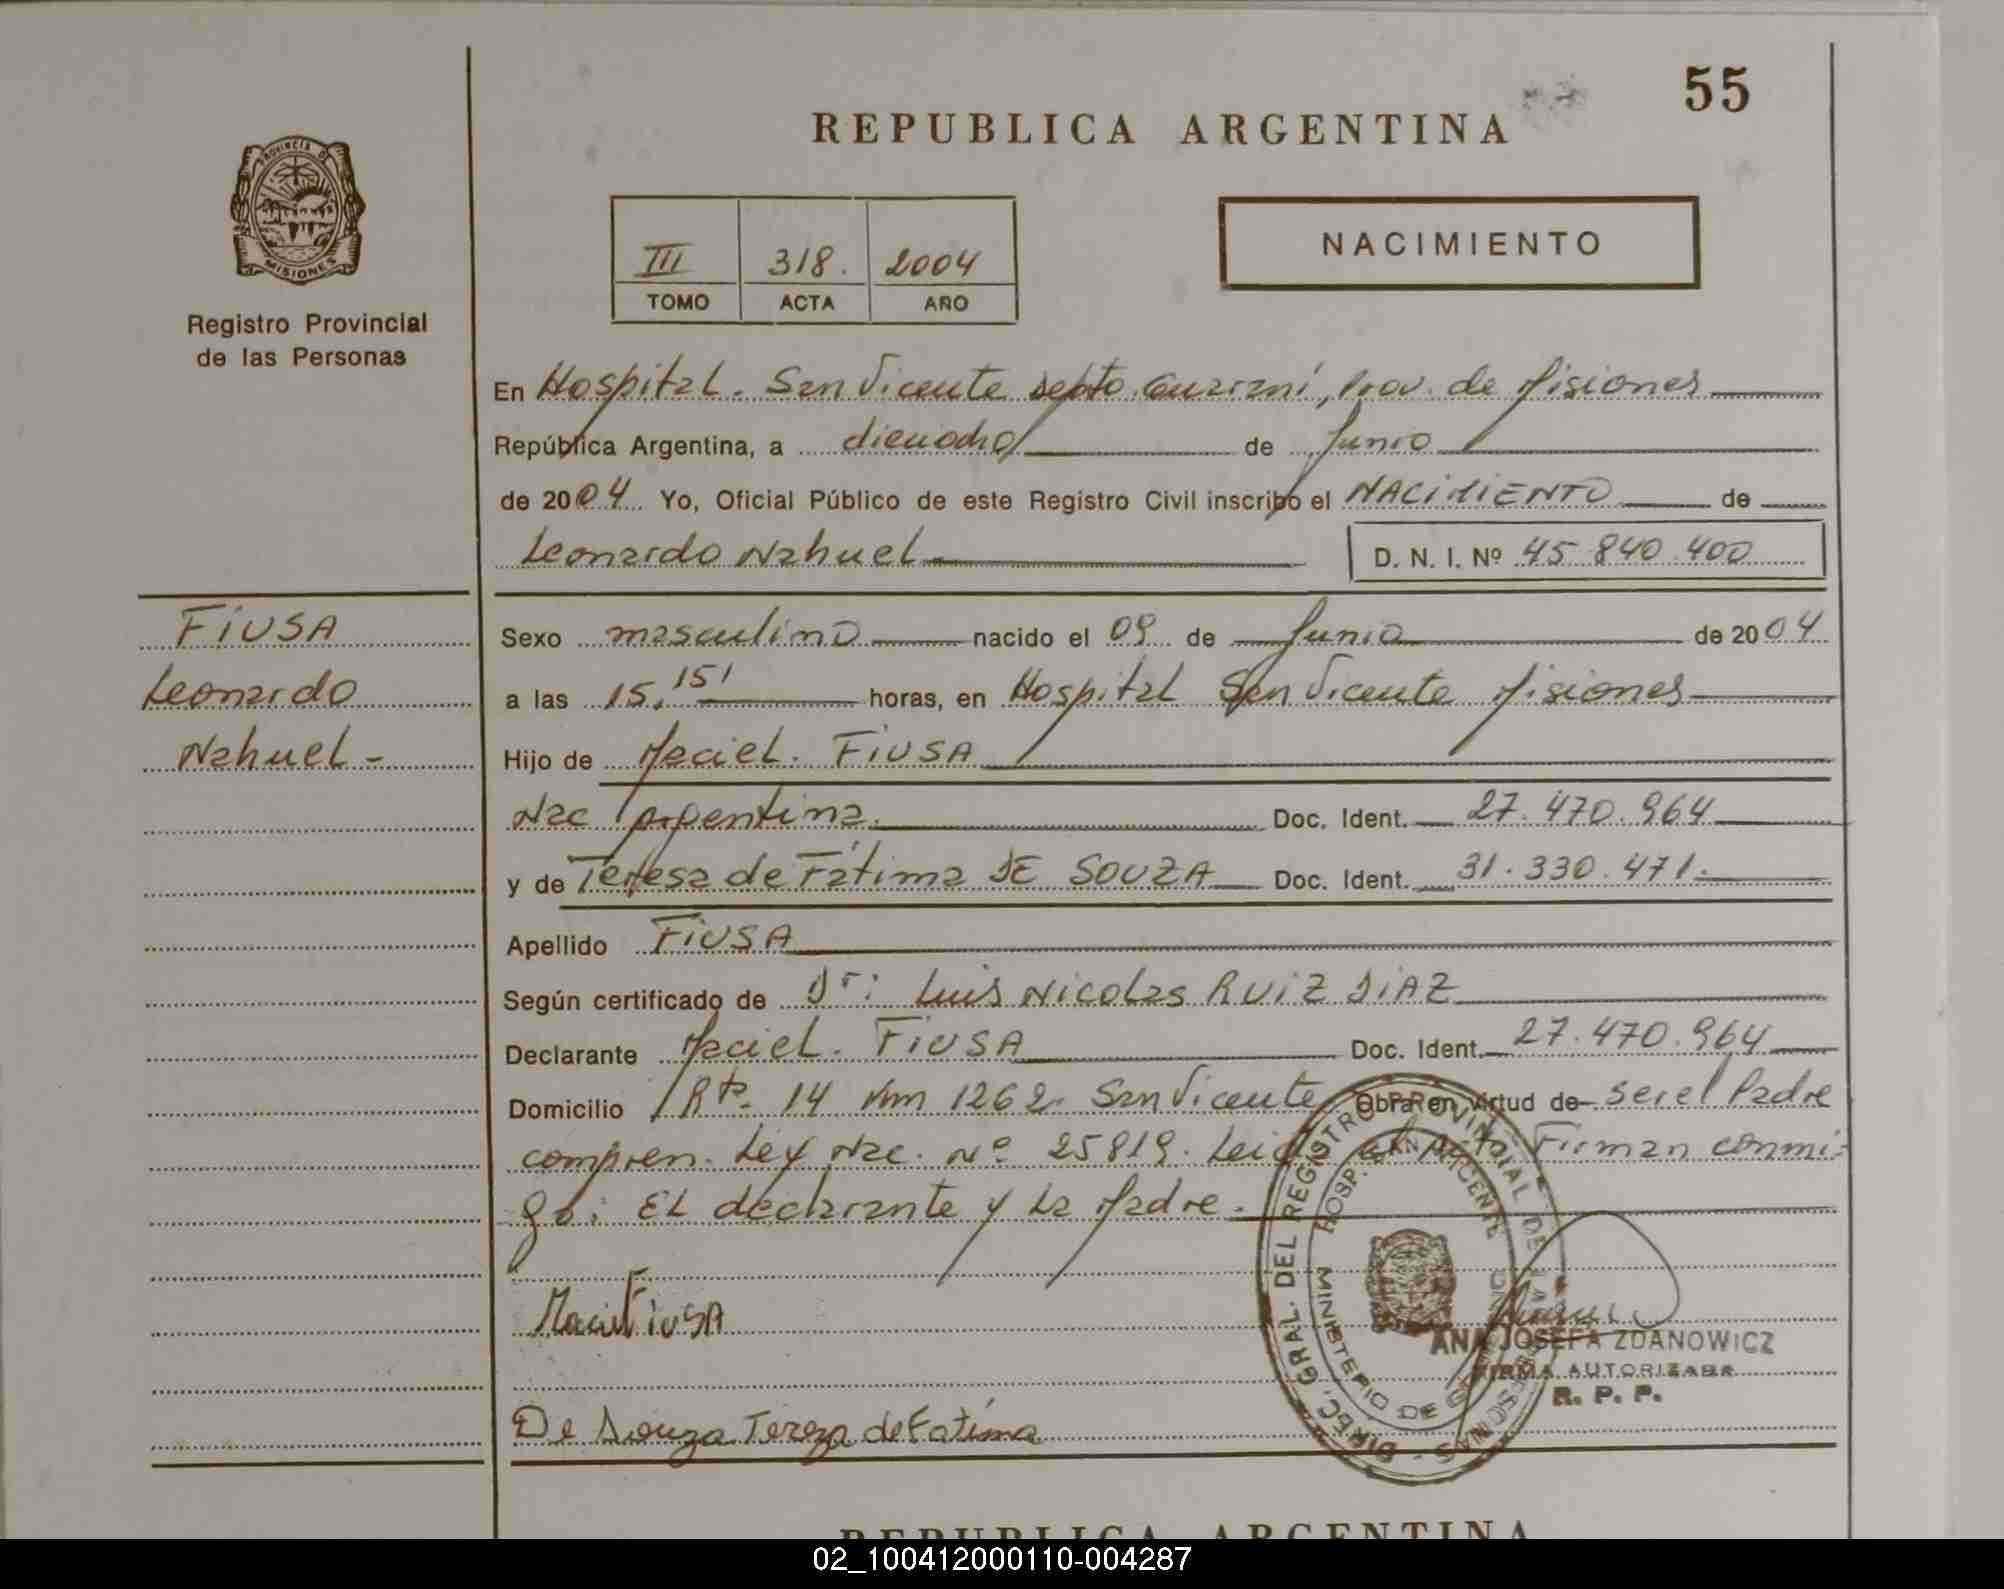 55
REPUBLICA ARGENTINA
PROVINCIA DE
MISIONES
Registro Provincial
de las Personas
III 318. 2004
TOMO ACTA AÑO
NACIMIENTO
En Hospital. San Vicente Depto. Guaraní, Prov. de Misiones
República Argentina, a dieciocho de Junio
de 2004 Yo, Oficial Público de este Registro Civil inscribo el NACIMIENTO de
Leonardo Nahuel D. N. I. Nº 45.840.400
FIUSA
Leonardo
Nahuel -
Sexo masculino nacido el 09 de Junio de 2004
a las 15,15' horas, en Hospital San Vicente Misiones
Hijo de Maciel. FIUSA
Nac Argentina. Doc. Ident. 27.470.964
y de Teresa de Fátima DE SOUZA Doc. Ident. 31.330.471.
Apellido FIUSA
Según certificado de Dr: Luis Nicolas RUIZ DIAZ
Declarante Maciel. FIUSA Doc. Ident. 27.470.964
Domicilio Rta. 14 Km 1262. San Vicente Obra en virtud de ser el Padre
compren. Ley Nac. Nº 25819. Leida el Acta, Firman conmi-
go: El declarante y La Madre.
Maciel FiUSA
De Souza Tereza de Fatima
DIREC. GRAL. DEL REGISTRO PROVINCIAL DE LAS PERSONAS
HOSP. SAN VICENTE
MINISTERIO DE
ANA JOSEFA ZDANOWICZ
FIRMA AUTORIZADA
R. P. P.
REPUBLICA ARGENTINA
02_100412000110-004287